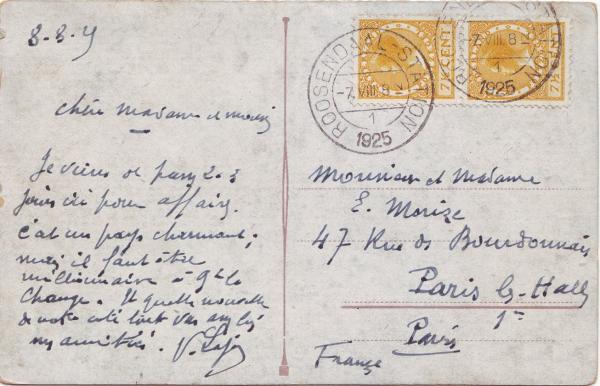 8-8-25
chère Madame et
Je viens de passer 2-3
jours ici pour affaire.
c'est un pays charmant;
mais il faut être
millionnaire à
change. Et quelle nouvelle
de votre côté tout va
mes amitiés.
ROOSENDAAL-STATION
-7.VIII 8-
1
1925
-7.VIII 8-
1
1925
STATION
7½ CENT
7½
Monsieur et Madame
E. Morize
47 Rue de Bourdonnais
Paris les Halles
1er
Paris
France